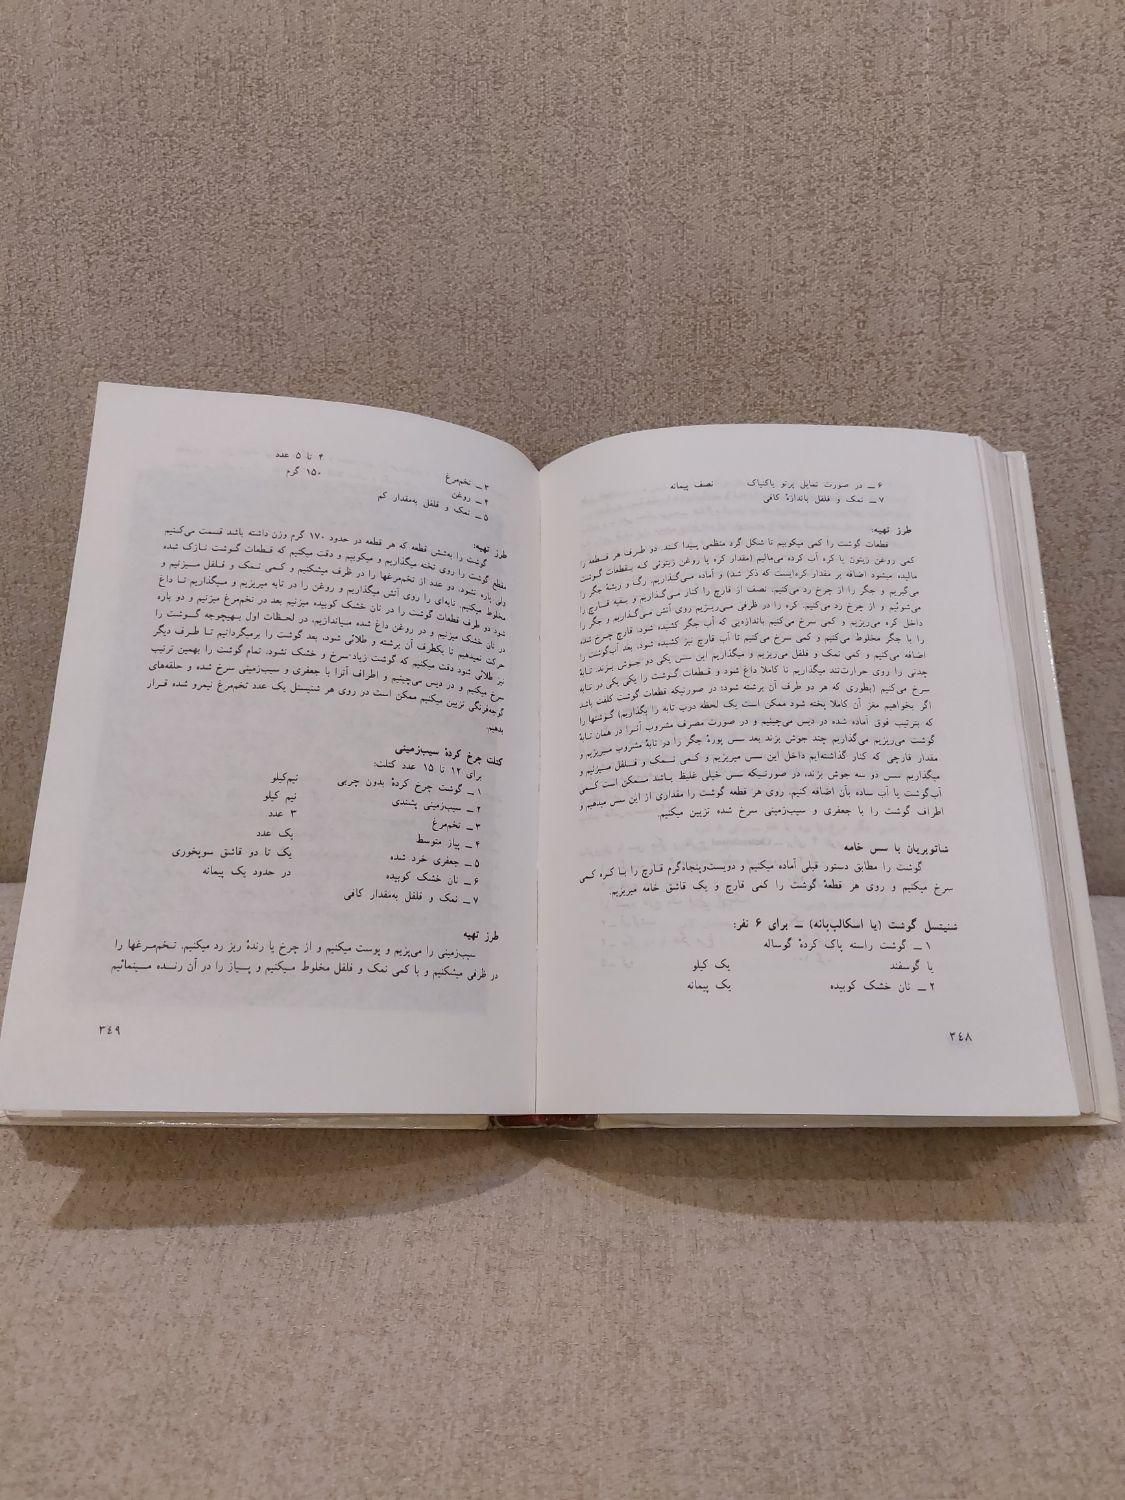 ۶ ــ در صورت تمایل پرتو یاکنیاک نصف پیمانه
۷ ــ نمک و فلفل باندازهٔ کافی
طرز تهیه:
قطعات گوشت را کمی میکوبیم تا شکل گرد منظمی پیدا کنند. دو طرف هر قطعه را
کمی روغن زیتون یا کره آب کرده می‌مالیم (مقدار کره یا روغن زیتونی که بقطعات گوشت
مالیده میشود اضافه بر مقدار کره‌ایست که ذکر شد) و آماده می‌گذاریم. رگ و ریشهٔ جگر را
می‌گیریم و جگر را از چرخ رد می‌کنیم. نصف از قارچ را کنار می‌گذاریم و بقیه قارچ را
می‌شوئیم و از چرخ رد می‌کنیم. کره را در ظرفی می‌ریزیم روی آتش می‌گذاریم و جگر را
داخل کره می‌ریزیم و کمی سرخ می‌کنیم باندازه‌یی که آب جگر کشیده شود، قارچ چرخ شده
را با جگر مخلوط می‌کنیم و کمی سرخ می‌کنیم تا آب قارچ نیز کشیده شود، بعد آب‌گوشت را
اضافه می‌کنیم و کمی نمک و فلفل می‌ریزیم و میگذاریم این سس یکی دو جوش بزند. تابهٔ
چدنی را روی حرارت‌تند میگذاریم تا کاملا داغ شود و قطعات گوشت را یکی یکی در تابه
سرخ می‌کنیم (بطوری که هر دو طرف آن برشته شود؛ در صورتیکه قطعات گوشت کلفت باشد
اگر بخواهیم مغز آن کاملا پخته شود ممکن است یک لحظه درب تابه را بگذاریم) گوشتها را
که بترتیب فوق آماده شده در دیس می‌چینیم و در صورت مصرف مشروب آنرا در همان تابهٔ
گوشت می‌ریزیم می‌گذاریم چند جوش بزند بعد سس پورهٔ جگر را در تابهٔ مشروب میریزیم و
مقدار قارچی که کنار گذاشته‌ایم داخل این سس میریزیم و کمی نمک و فلفل میزنیم و
میگذاریم سس دو سه جوش بزند، در صورتیکه سس خیلی غلیظ باشد ممکن است کمی
آب‌گوشت یا آب ساده بآن اضافه کنیم. روی هر قطعه گوشت را مقداری از این سس میدهیم و
اطراف گوشت را با جعفری و سیب‌زمینی سرخ شده تزیین میکنیم.
شاتوبریان با سس خامه
گوشت را مطابق دستور قبلی آماده میکنیم و دویست‌وپنجاه‌گرم قارچ را با کره کمی
سرخ میکنیم و روی هر قطعهٔ گوشت را کمی قارچ و یک قاشق خامه میریزیم.
شنیتسل گوشت (یا اسکالپ‌پانه) ــ برای ۶ نفر:
۱ ــ گوشت راسته پاک کردهٔ گوساله
یا گوسفند یک کیلو
۲ ــ نان خشک کوبیده یک پیمانه
۳٤۸
۳ ــ تخم‌مرغ ۴ تا ۵ عدد
۴ ــ روغن ۱۵۰ گرم
۵ ــ نمک و فلفل به‌مقدار کم
طرز تهیه:
گوشت را به‌شش قطعه که هر قطعه در حدود ۱۷۰ گرم وزن داشته باشد قسمت می‌کنیم
مقطع گوشت را روی تخته میگذاریم و میکوبیم و دقت میکنیم که قطعات گوشت نازک شده
ولی پاره نشود. دو عدد از تخم‌مرغها را در ظرف میشکنیم و کمی نمک و فلفل میزنیم و
مخلوط میکنیم. تابه‌ای را روی آتش میگذاریم و روغن را در تابه میریزیم و میگذاریم تا داغ
شود دو طرف قطعات گوشت را در نان خشک کوبیده میزنیم بعد در تخم‌مرغ میزنیم و دو باره
در نان خشک میزنیم و در روغن داغ شده می‌اندازیم، در لحظات اول بهیچوجه گوشت را
حرکت نمیدهیم تا یکطرف آن برشته و طلائی شود، بعد گوشت را برمیگردانیم تا طرف دیگر
نیز طلائی شود دقت میکنیم که گوشت زیاد-سرخ و خشک نشود. تمام گوشت را بهمین ترتیب
سرخ میکنیم و در دیس می‌چینیم و اطراف آنرا با جعفری و سیب‌زمینی سرخ شده و حلقه‌های
گوجه‌فرنگی تزیین میکنیم ممکن است در روی هر شنیتسل یک عدد تخم‌مرغ نیمرو شده قرار
بدهیم.
کتلت چرخ کردهٔ سیب‌زمینی
برای ۱۲ تا ۱۵ عدد کتلت:
۱ ــ گوشت چرخ کردهٔ بدون چربی نیم‌کیلو
۲ ــ سیب‌زمینی پشندی نیم کیلو
۳ ــ تخم‌مرغ ۳ عدد
۴ ــ پیاز متوسط یک عدد
۵ ــ جعفری خرد شده یک تا دو قاشق سوپخوری
۶ ــ نان خشک کوبیده در حدود یک پیمانه
۷ ــ نمک و فلفل به‌مقدار کافی
طرز تهیه
سیب‌زمینی را می‌پزیم و پوست میکنیم و از چرخ یا رنده ریز رد میکنیم. تخم‌مرغها را
در ظرفی میشکنیم و با کمی نمک و فلفل مخلوط میکنیم و پیاز را در آن رنده مینمائیم
۳٤۹